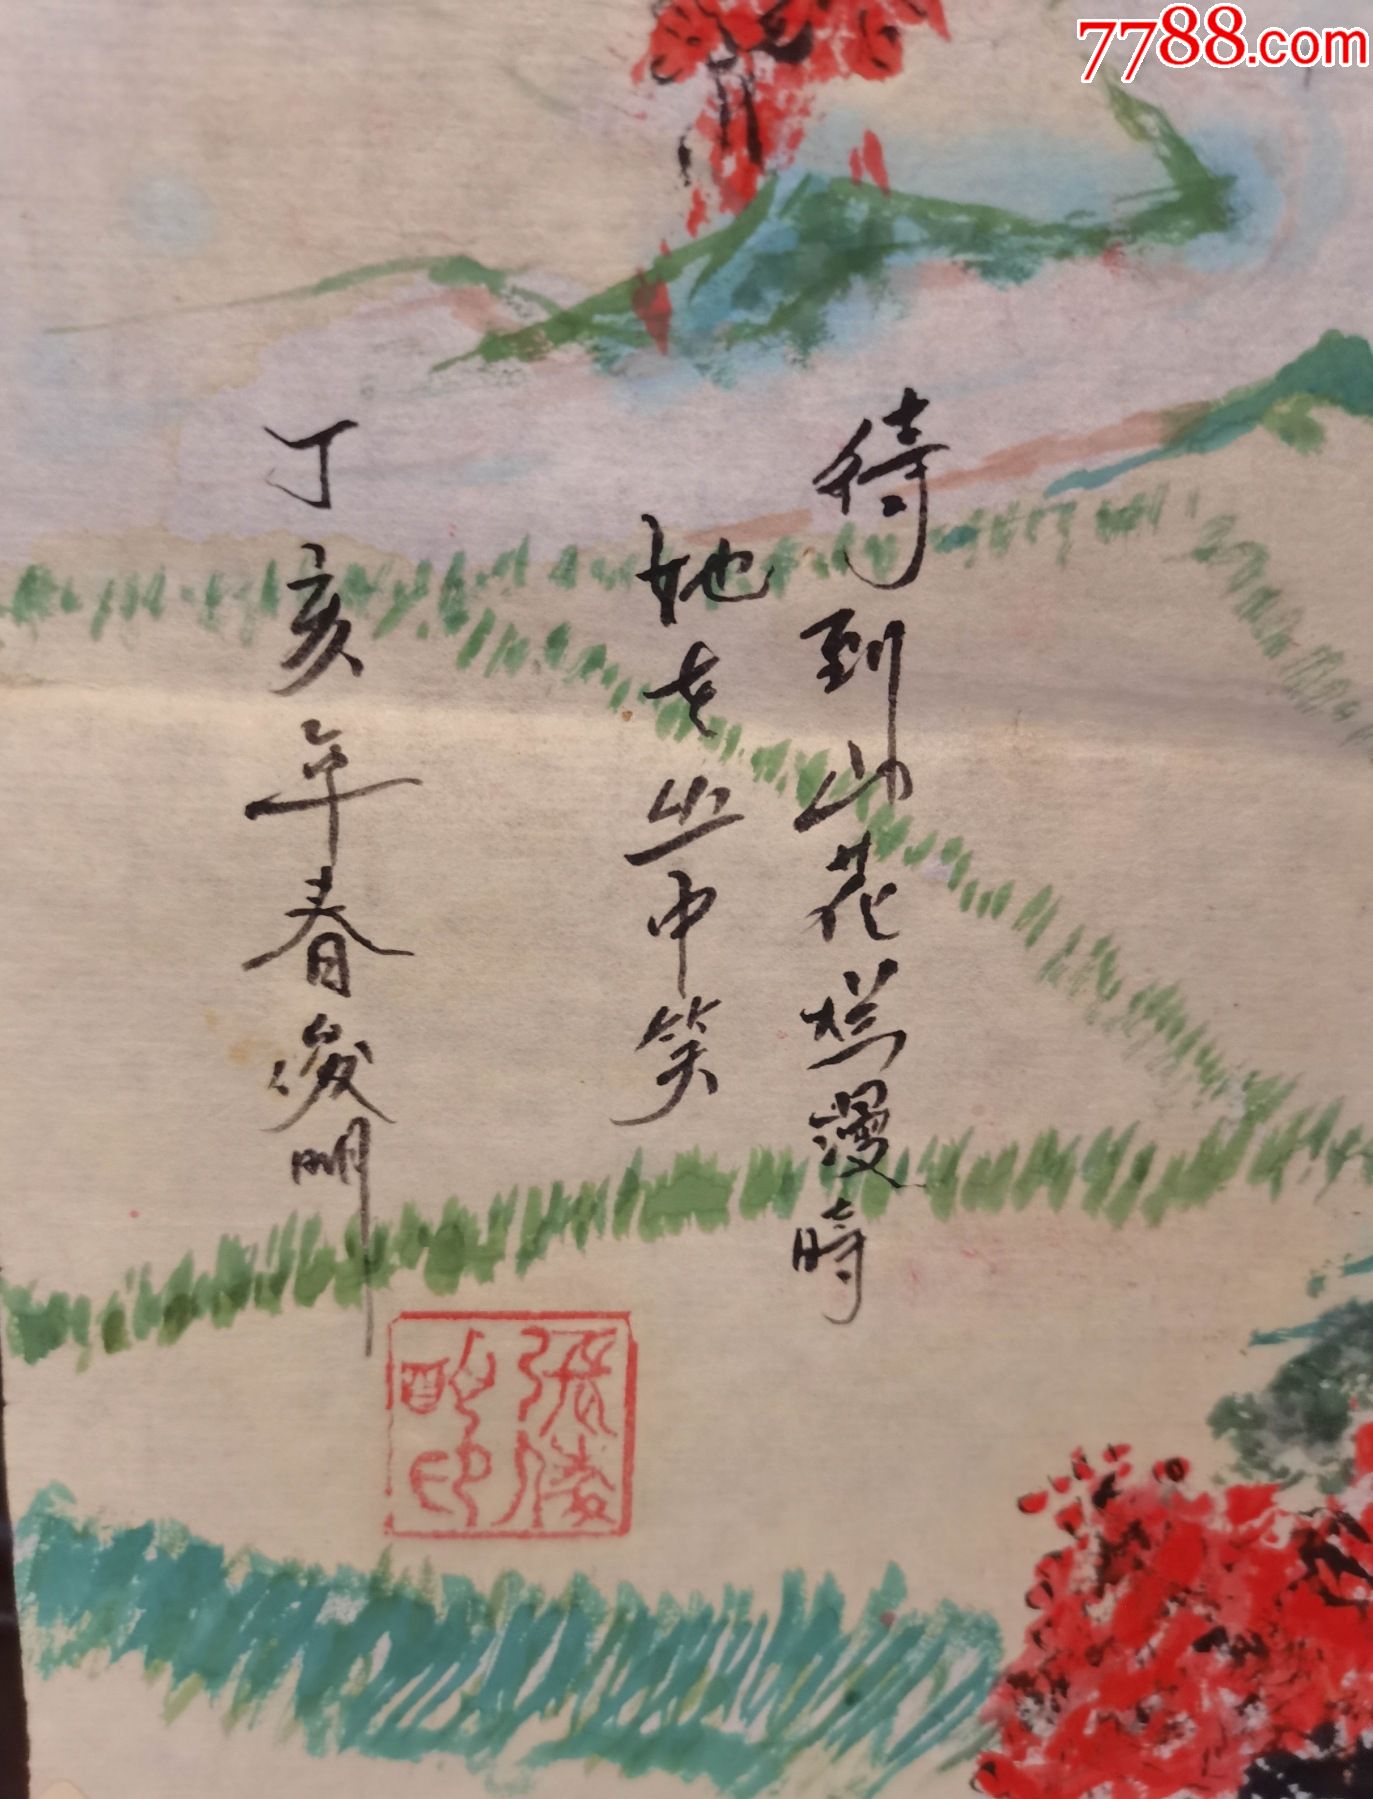 7788.com
待到山花烂漫時
她在丛中笑
丁亥年春俊明
張俊明印